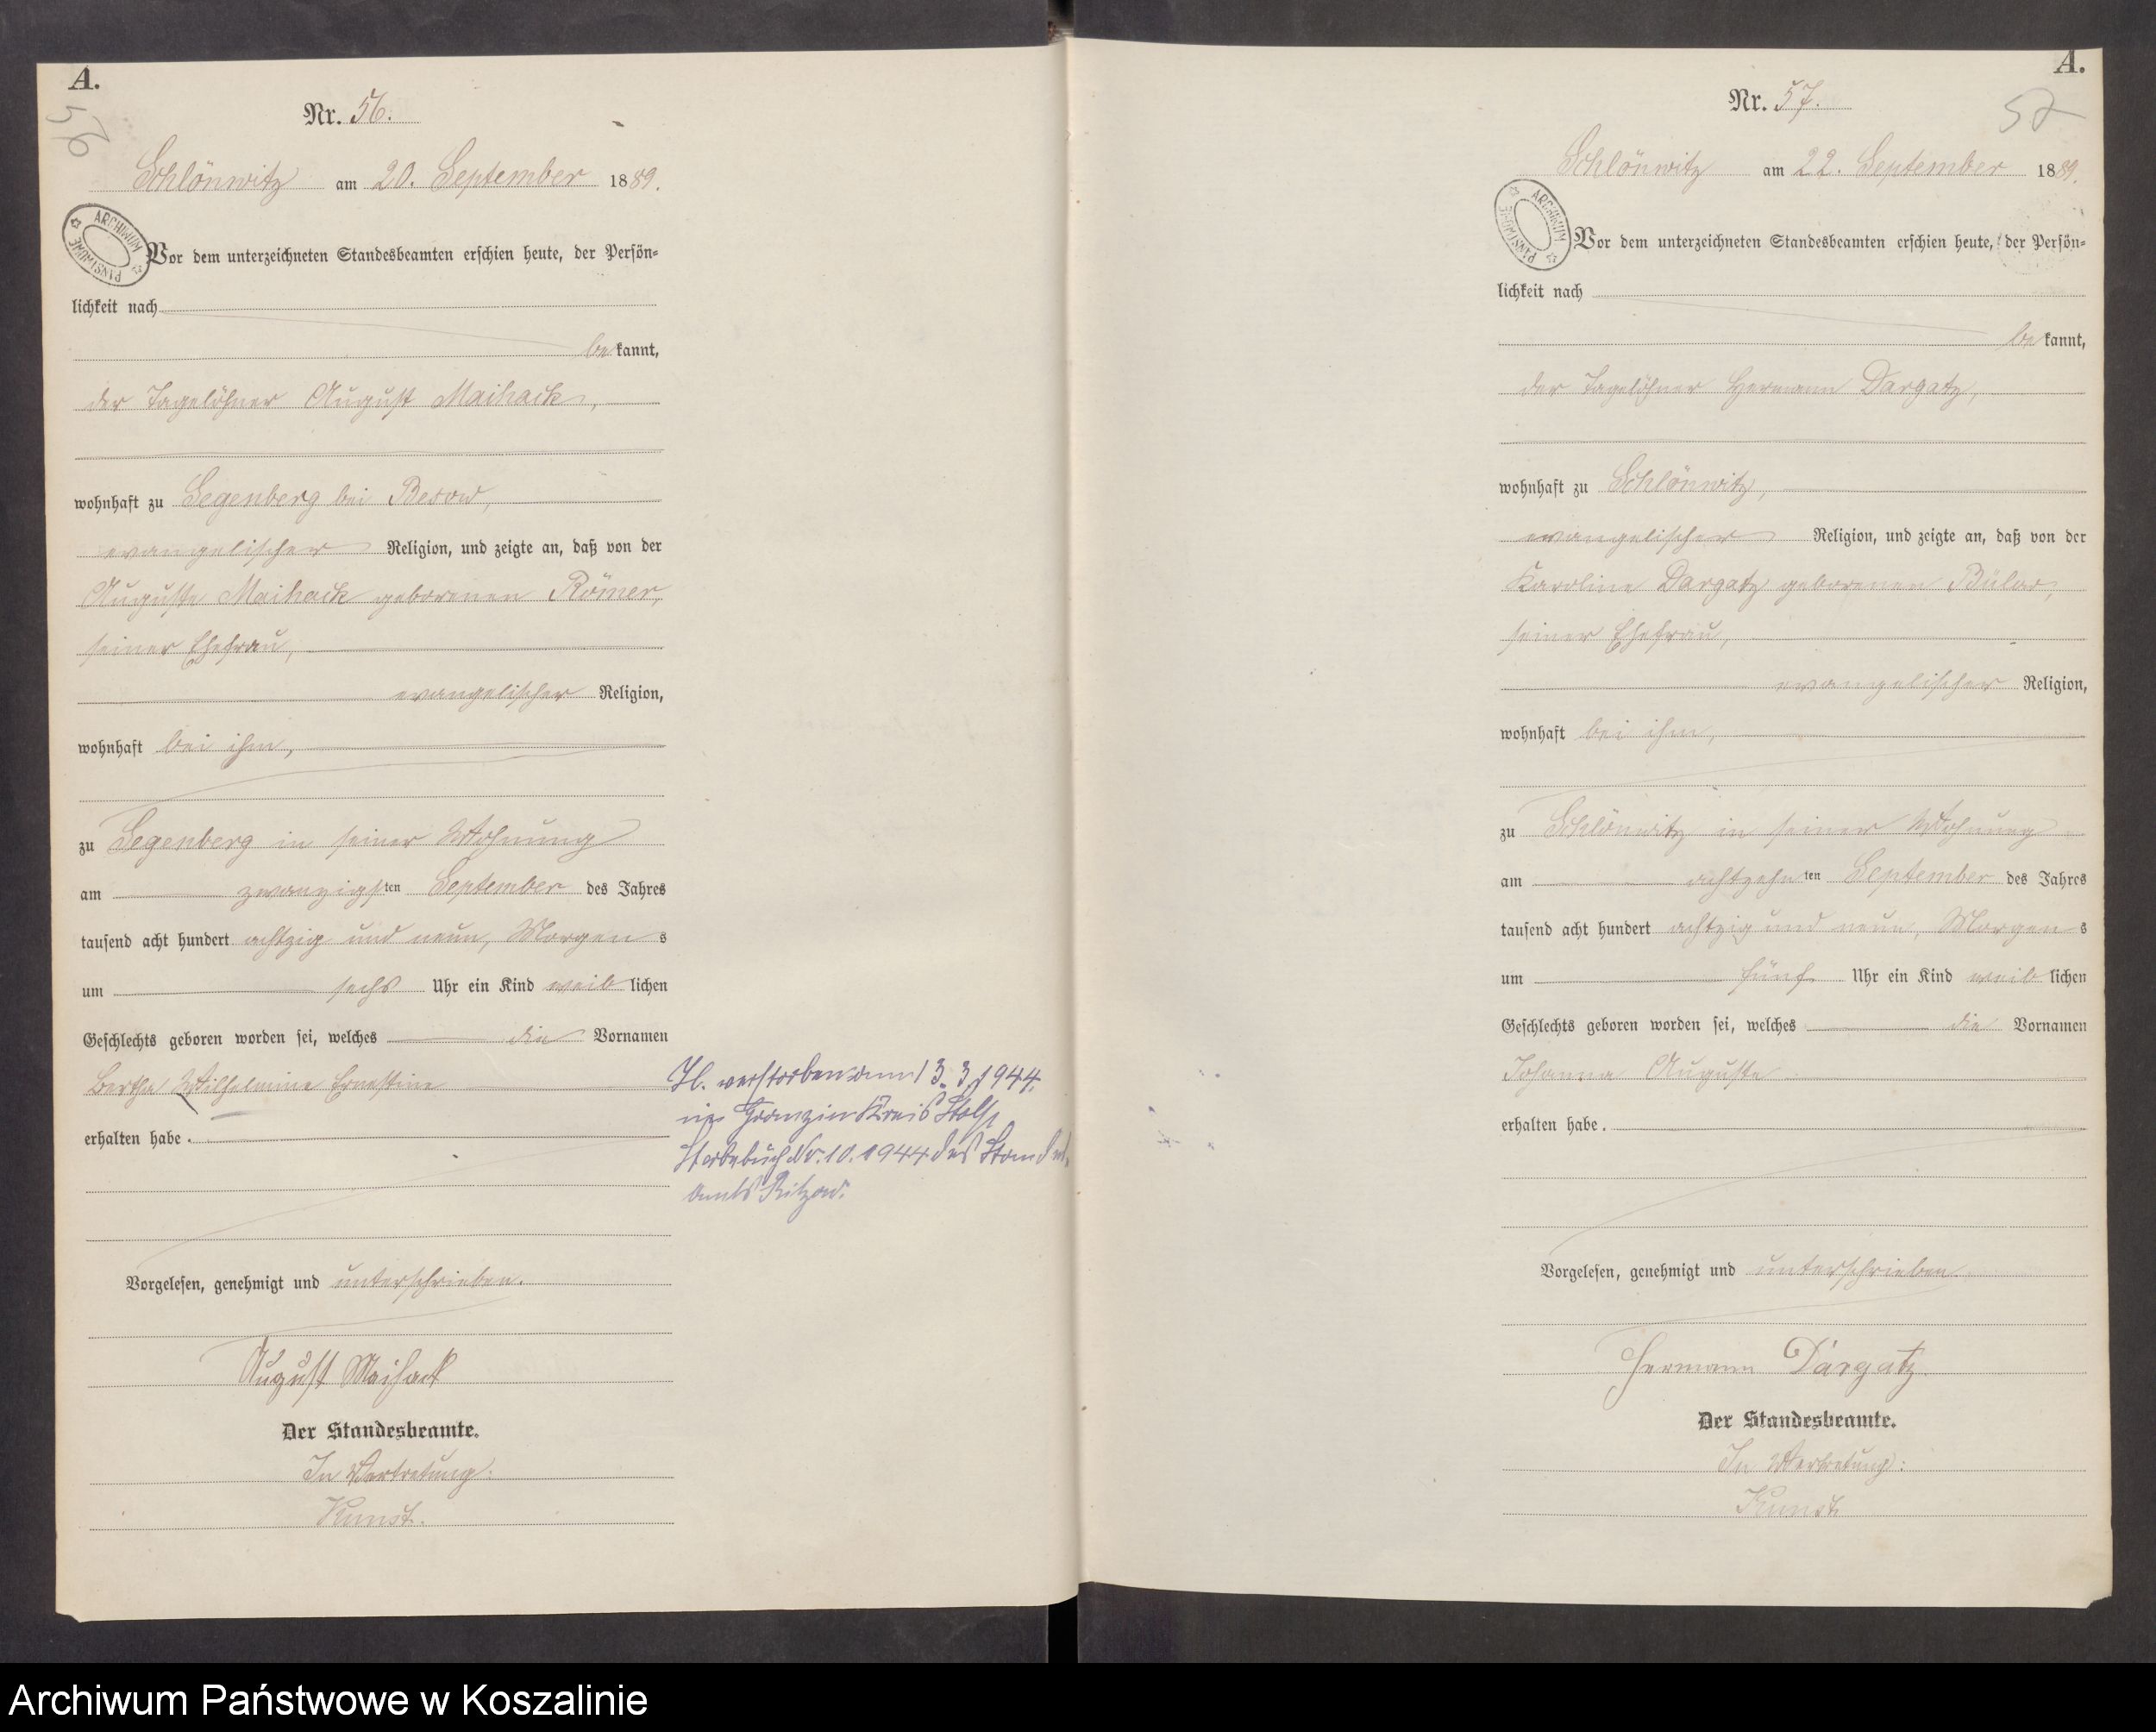 A.
56
Nr. 56.
Schlönwitz am 20. September 1889.
ARCHIWUM PAŃSTWOWE
Vor dem unterzeichneten Standesbeamten erschien heute, der Persön-
lichkeit nach
bekannt,
der Tagelöhner August Maihack,
wohnhaft zu Segenberg bei Besow,
evangelischer Religion, und zeigte an, daß von der
Auguste Maihack geborenen Römer,
seiner Ehefrau,
evangelischer Religion,
wohnhaft bei ihm,
zu Segenberg in seiner Wohnung
am zwanzigsten September des Jahres
tausend acht hundert achtzig und neun, Morgens
um sechs Uhr ein Kind weiblichen
Geschlechts geboren worden sei, welches die Vornamen
Bertha Wilhelmine Ernestine
erhalten habe.
Vorgelesen, genehmigt und unterschrieben.
August Maihack
Der Standesbeamte.
In Vertretung:
Kunst.
verstorben am 13.3.1944.
Kreis Stolp
Sterbebuch Nr. 10.1944 des Standes-
amts Ritzow.
A.
57
Nr. 57.
Schlönwitz am 22. September 1889.
ARCHIWUM PAŃSTWOWE
Vor dem unterzeichneten Standesbeamten erschien heute, der Persön-
lichkeit nach
bekannt,
der Tagelöhner Hermann Dargatz,
wohnhaft zu Schlönwitz,
evangelischer Religion, und zeigte an, daß von der
Karoline Dargatz geborenen Bülow,
seiner Ehefrau,
evangelischer Religion,
wohnhaft bei ihm,
zu Schlönwitz in seiner Wohnung
am achtzehnten September des Jahres
tausend acht hundert achtzig und neun, Morgens
um fünf Uhr ein Kind weiblichen
Geschlechts geboren worden sei, welches die Vornamen
Johanna Auguste
erhalten habe.
Vorgelesen, genehmigt und unterschrieben.
Hermann Dargatz
Der Standesbeamte.
In Vertretung:
Kunst.
Archiwum Państwowe w Koszalinie